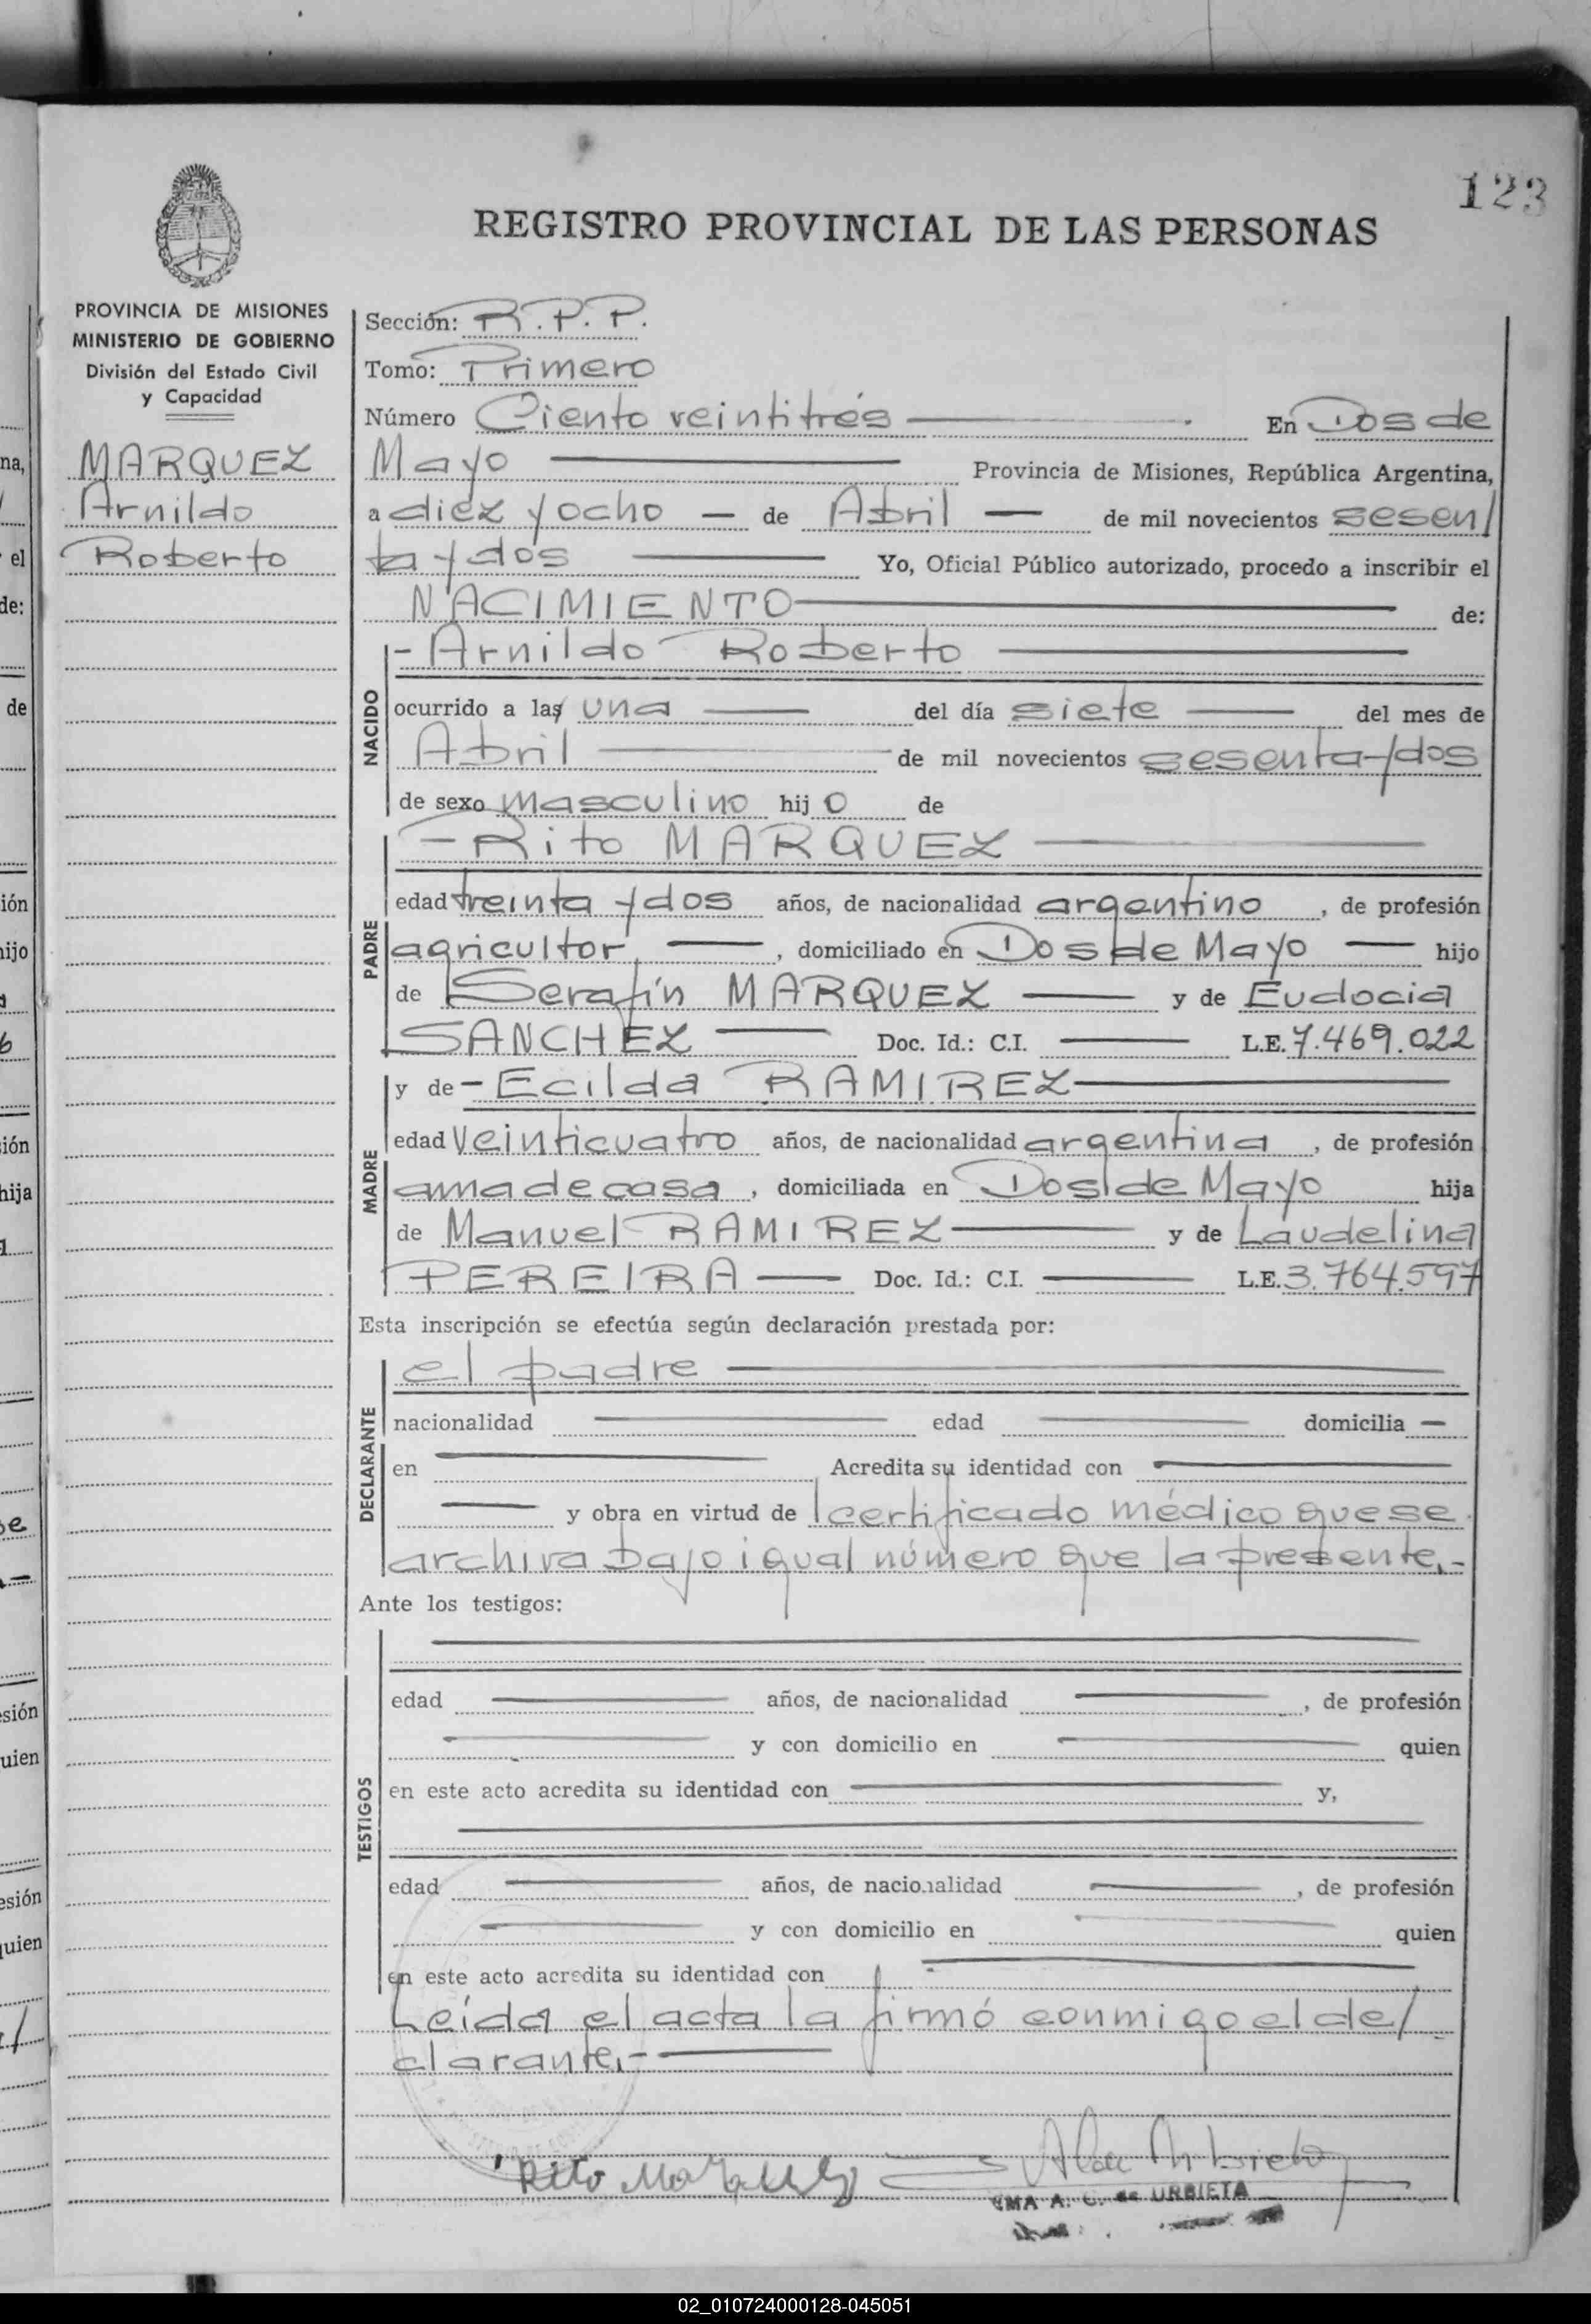 123
REGISTRO PROVINCIAL DE LAS PERSONAS
PROVINCIA DE MISIONES
MINISTERIO DE GOBIERNO
División del Estado Civil
y Capacidad
MARQUEZ
Arnildo
Roberto
Sección: R.P.P.
Tomo: Primero
Número Ciento veintitrés En Dos de
Mayo Provincia de Misiones, República Argentina,
a diez y ocho — de Abril — de mil novecientos sesen/
ta y dos Yo, Oficial Público autorizado, procedo a inscribir el
NACIMIENTO de:
- Arnildo Roberto
NACIDO
ocurrido a las una del día siete del mes de
Abril de mil novecientos sesenta y dos
de sexo masculino hijo de
- Rito MARQUEZ
PADRE
edad treinta y dos años, de nacionalidad argentino, de profesión
agricultor, domiciliado en Dos de Mayo — hijo
de Serafín MARQUEZ y de Eudocia
SANCHEZ Doc. Id.: C.I. L.E. 7.469.022
y de - Ecilda RAMIREZ
MADRE
edad veinticuatro años, de nacionalidad argentina, de profesión
ama de casa, domiciliada en Dos de Mayo hija
de Manuel RAMIREZ y de Laudelina
PEREIRA Doc. Id.: C.I. L.E. 3.764.597
Esta inscripción se efectúa según declaración prestada por:
el padre
DECLARANTE
nacionalidad edad domicilia —
en Acredita su identidad con
y obra en virtud de certificado médico que se
archiva bajo igual número que la presente.-
Ante los testigos:
TESTIGOS
edad años, de nacionalidad , de profesión
y con domicilio en quien
en este acto acredita su identidad con y,
edad años, de nacionalidad , de profesión
y con domicilio en quien
en este acto acredita su identidad con
Leída el acta la firmó conmigo el de/
clarante.-
Rito Marquez
A. C. de URBIETA
na,
el
de:
de
ión
hijo
ión
hija
se
esión
quien
esión
quien
02_010724000128-045051